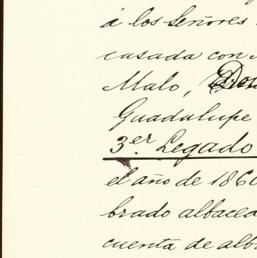 á los Señores
casada con
Malo,
Guadalupe
3er Legado
el año de 186
brado albacea
cuenta de alb